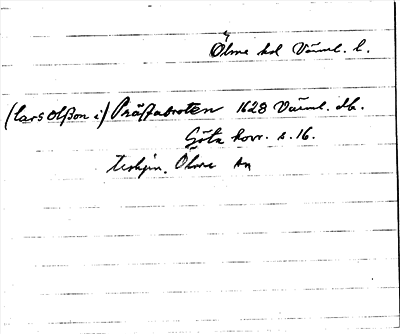 Ölme hd Värml. l.
(Lars Olßon i) Prästabroten 1628 Värml. db.
Göta hovr. s. 16.
Ölme